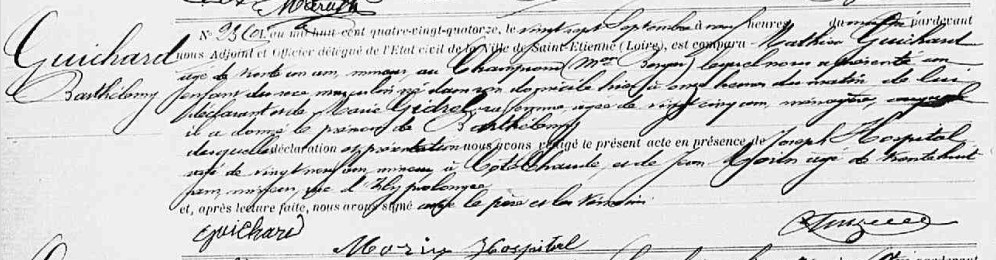 Guichard
Barthélemy
N° L'an mil huit cent quatre-vingt-quatorze, le vingt sept Septembre à heures du matin pardevant
nous Adjoint et Officier délégué de l'Etat civil de la Ville de Saint-Etienne (Loire), est comparu Mathieu Guichard
âgé de trente un ans, mineur au Champrond (Mon ) lequel nous a présenté un
enfant du sexe masculin né dans son domicile hier à onze heures du matin de lui
déclarant et de Marie sa femme âgée de vingt cinq ans, ménagère, auquel
il a donné le prénom de Barthélemy
desquelles déclaration et présentation nous avons rédigé le présent acte en présence de Joseph Hospital
âgé de vingt neuf ans, mineur à Côte Chaude, et de Jean Morin âgé de trente huit
ans, mineur, rue d' prolongée
et, après lecture faite, nous avons signé avec le père et les témoins
Guichard
Morin Hospital